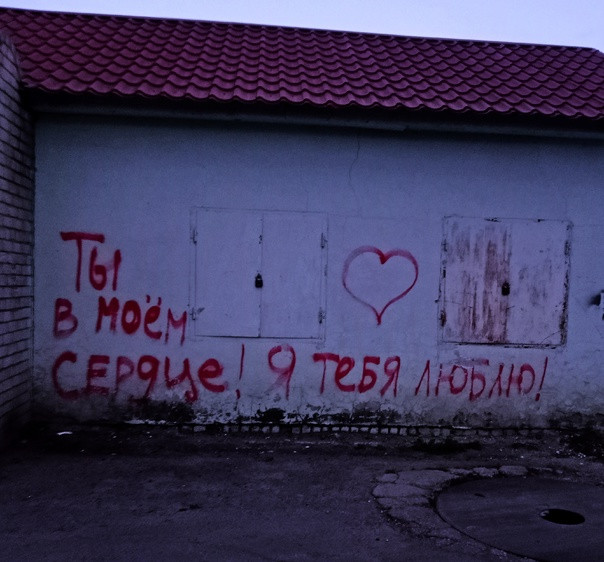 Ты
в моём
сердце! Я тебя люблю!